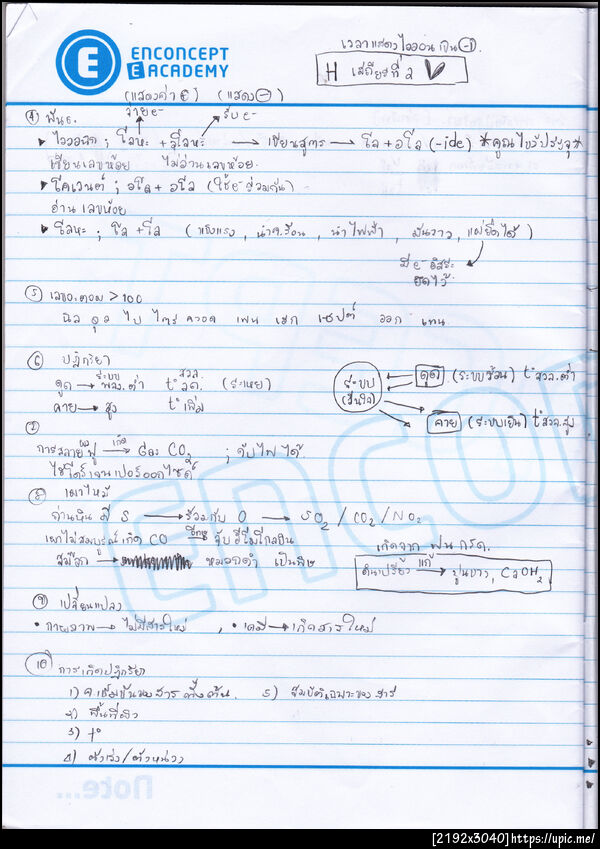 ENCONCEPT
E ACADEMY
เวลาแสดงไอออนเป็น -1
H เสถียรที่ 2
(แสดงค่า ⊕) (แสดง ⊖)
จ่าย e⁻ รับ e⁻
④ พันธะ
▸ ไอออนิก ; โลหะ + อโลหะ → เขียนสูตร → โล + อโล (-ide) * คูณไขว้ประจุ *
เขียนเลขห้อย ไม่อ่านเลขห้อย
▸ โคเวเลนต์ ; อโล + อโล (ใช้ e⁻ ร่วมกัน)
อ่านเลขห้อย
▸ โลหะ ; โล + โล (แข็งแรง, นำค.ร้อน, นำไฟฟ้า, มันวาว, แผ่ยืดได้)
มี e⁻ อิสระ
ยึดไว้
⑤ เลขอะตอม > 100
นิล อุล ไบ ไตร ควอด เพน เฮก เซปต์ ออก เทน
⑥ ปฏิกิริยา
ดูด → ระบบ พลง.ต่ำ สวล. t° ลด (ระเหย)
คาย → สูง t° เพิ่ม
ระบบ
(สนใจ)
ดูด (ระบบร้อน) t° สวล.ต่ำ
คาย (ระบบเย็น) t° สวล.สูง
⑦
การสลายผงฟู เกิด → Gas CO₂ ; ดับไฟได้
ไฮโดรเจนเปอร์ออกไซด์
⑧ เผาไหม้
ถ่านหิน มี S → รวมกับ O → SO₂ / CO₂ / NO₂
เผาไม่สมบูรณ์เกิด CO → จับฮีโมโกลบิน
สมีอก → หมอกดำ เป็นพิษ
เกิดจาก ฝนกรด
ดินเปรี้ยว แก้ → ปูนขาว, CaOH₂
⑨ เปลี่ยนแปลง
• กายภาพ → ไม่มีสารใหม่, • เคมี → เกิดสารใหม่
⑩ การเกิดปฏิกิริยา
1) ค.เข้มข้นของสารตั้งต้น 5) สมบัติเฉพาะของสาร
2) พื้นที่ผิว
3) t°
4) ตัวเร่ง/ตัวหน่วง
Note...
[2192x3040]https://upic.me/